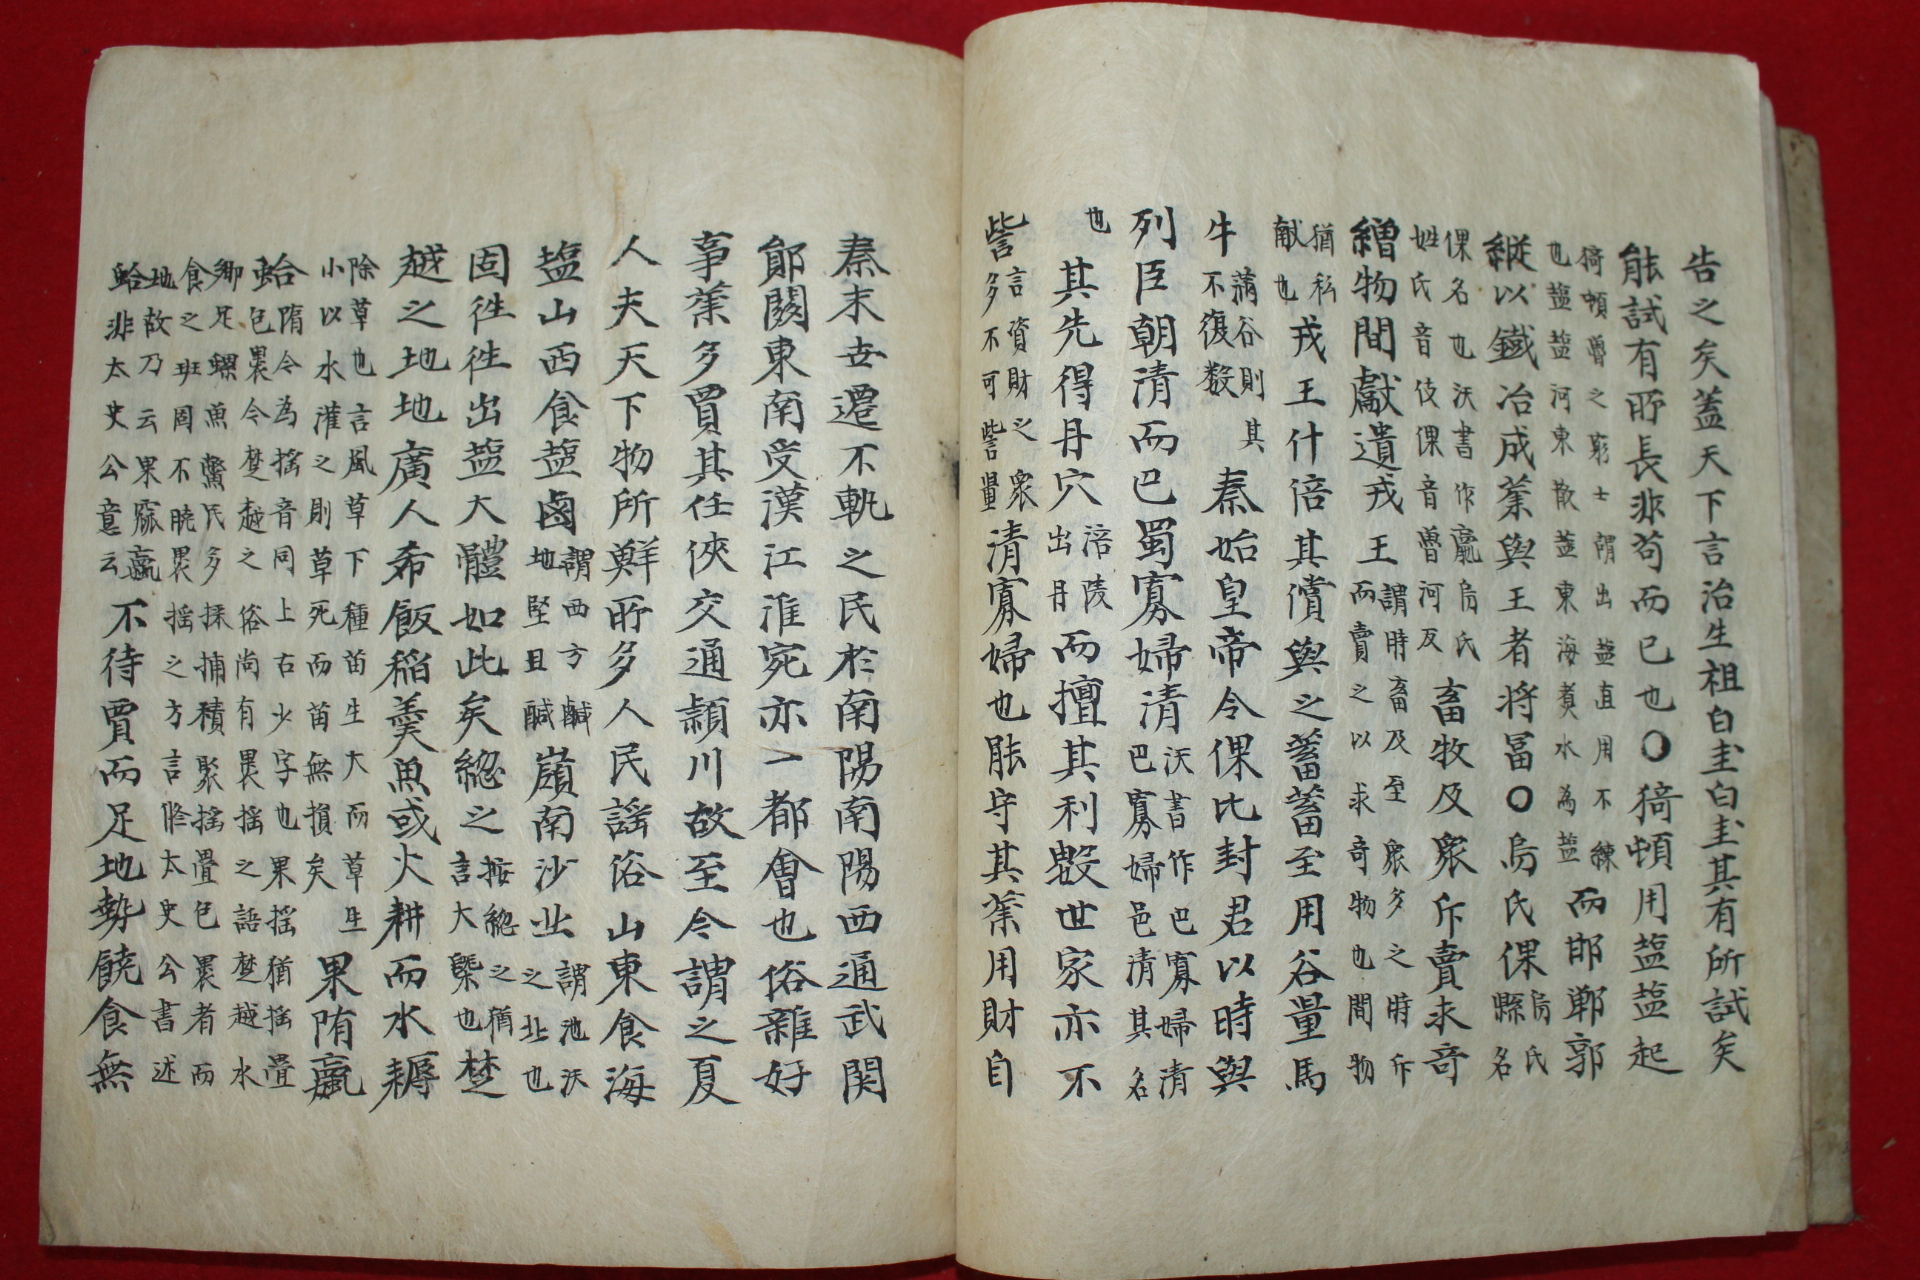 告之矣蓋天下言治生祖白圭白圭其有所試矣
能試有所長非苟而已也〇猗頓用盬塩起
猗頓魯之窮士謂出塩直用不練
也塩塩河東散塩東海煮水為塩
而邯鄲郭
縱以鐵冶成業與王者将冨〇烏氏倮
烏氏
縣名
倮名也沃書作蠃烏氏
姓氏音伎倮音魯河及
畜牧及衆斥賣求奇
繒物間獻遺戎王
謂時畜及至衆多之時斥
而賣之以求奇物也間物
猶私
献也
戎王什倍其償與之蓄蓄至用谷量馬
牛
滿谷則其
不復数
秦始皇帝令倮比封君以時與
列臣朝清而巴蜀寡婦清
沃書作巴寡婦清
巴寡婦邑清其名
也
其先得丹穴
涪陵
出丹
而擅其利數世家亦不
訾
言資財之衆
多不可訾量
清寡婦也能守其業用財自
秦末世遷不軌之民於南陽南陽西通武関
鄖関東南受漢江淮宛亦一都會也俗雜好
事業多賈其任俠交通潁川故至今謂之夏
人夫天下物所鮮所多人民謡俗山東食海
塩山西食塩鹵
謂西方鹹
地堅且鹹
嶺南沙北
謂池沃
之北也
固徃徃出塩大體如此矣総之
按総之猶
言大槩也
楚
越之地地廣人希飯稲羹魚或火耕而水耨
除草也言風草下種苗生大而草生
小以水灌之則草死而苗無損矣
果陏蠃
蛤
隋今為搖音同上古少字也果搖猶搖疊
包裹今楚越之俗尚有裹搖之語楚越水
鄉足螺魚鱉民多採捕積聚搖疊包裹者而
食之班固不曉裹搖之方言脩太史公書述
地故乃云果窳蠃
蛤非太史公意云
不待賈而足地勢饒食無